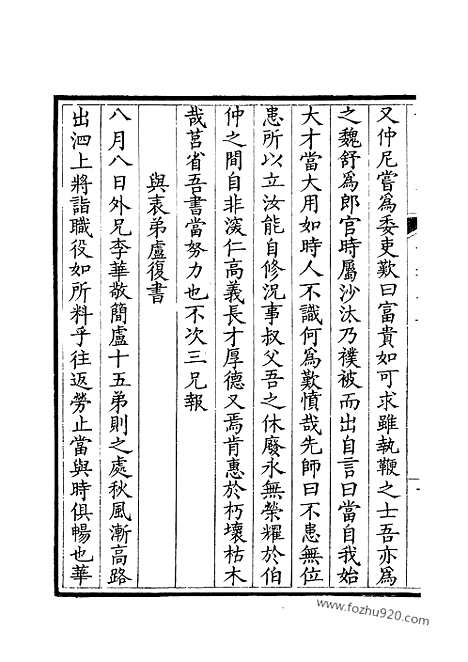 又仲尼嘗爲委吏歎曰富貴如可求雖執鞭之士吾亦爲
之魏舒爲郎官時屬沙汰乃襆被而出自言曰當自我始
大才當大用如時人不識何爲歎憤哉先師曰不患無位
患所以立汝能自修況事叔父吾之休廢永無榮耀於伯
仲之間自非深仁高義長才厚德又焉肯惠於朽壞枯木
哉莒省吾書當努力也不次三兄報
與表弟盧復書
八月八日外兄李華敬簡盧十五弟則之處秋風漸高路
出泗上將詣職役如所料乎往返勞止當與時俱暢也華
www.fozhu920.com